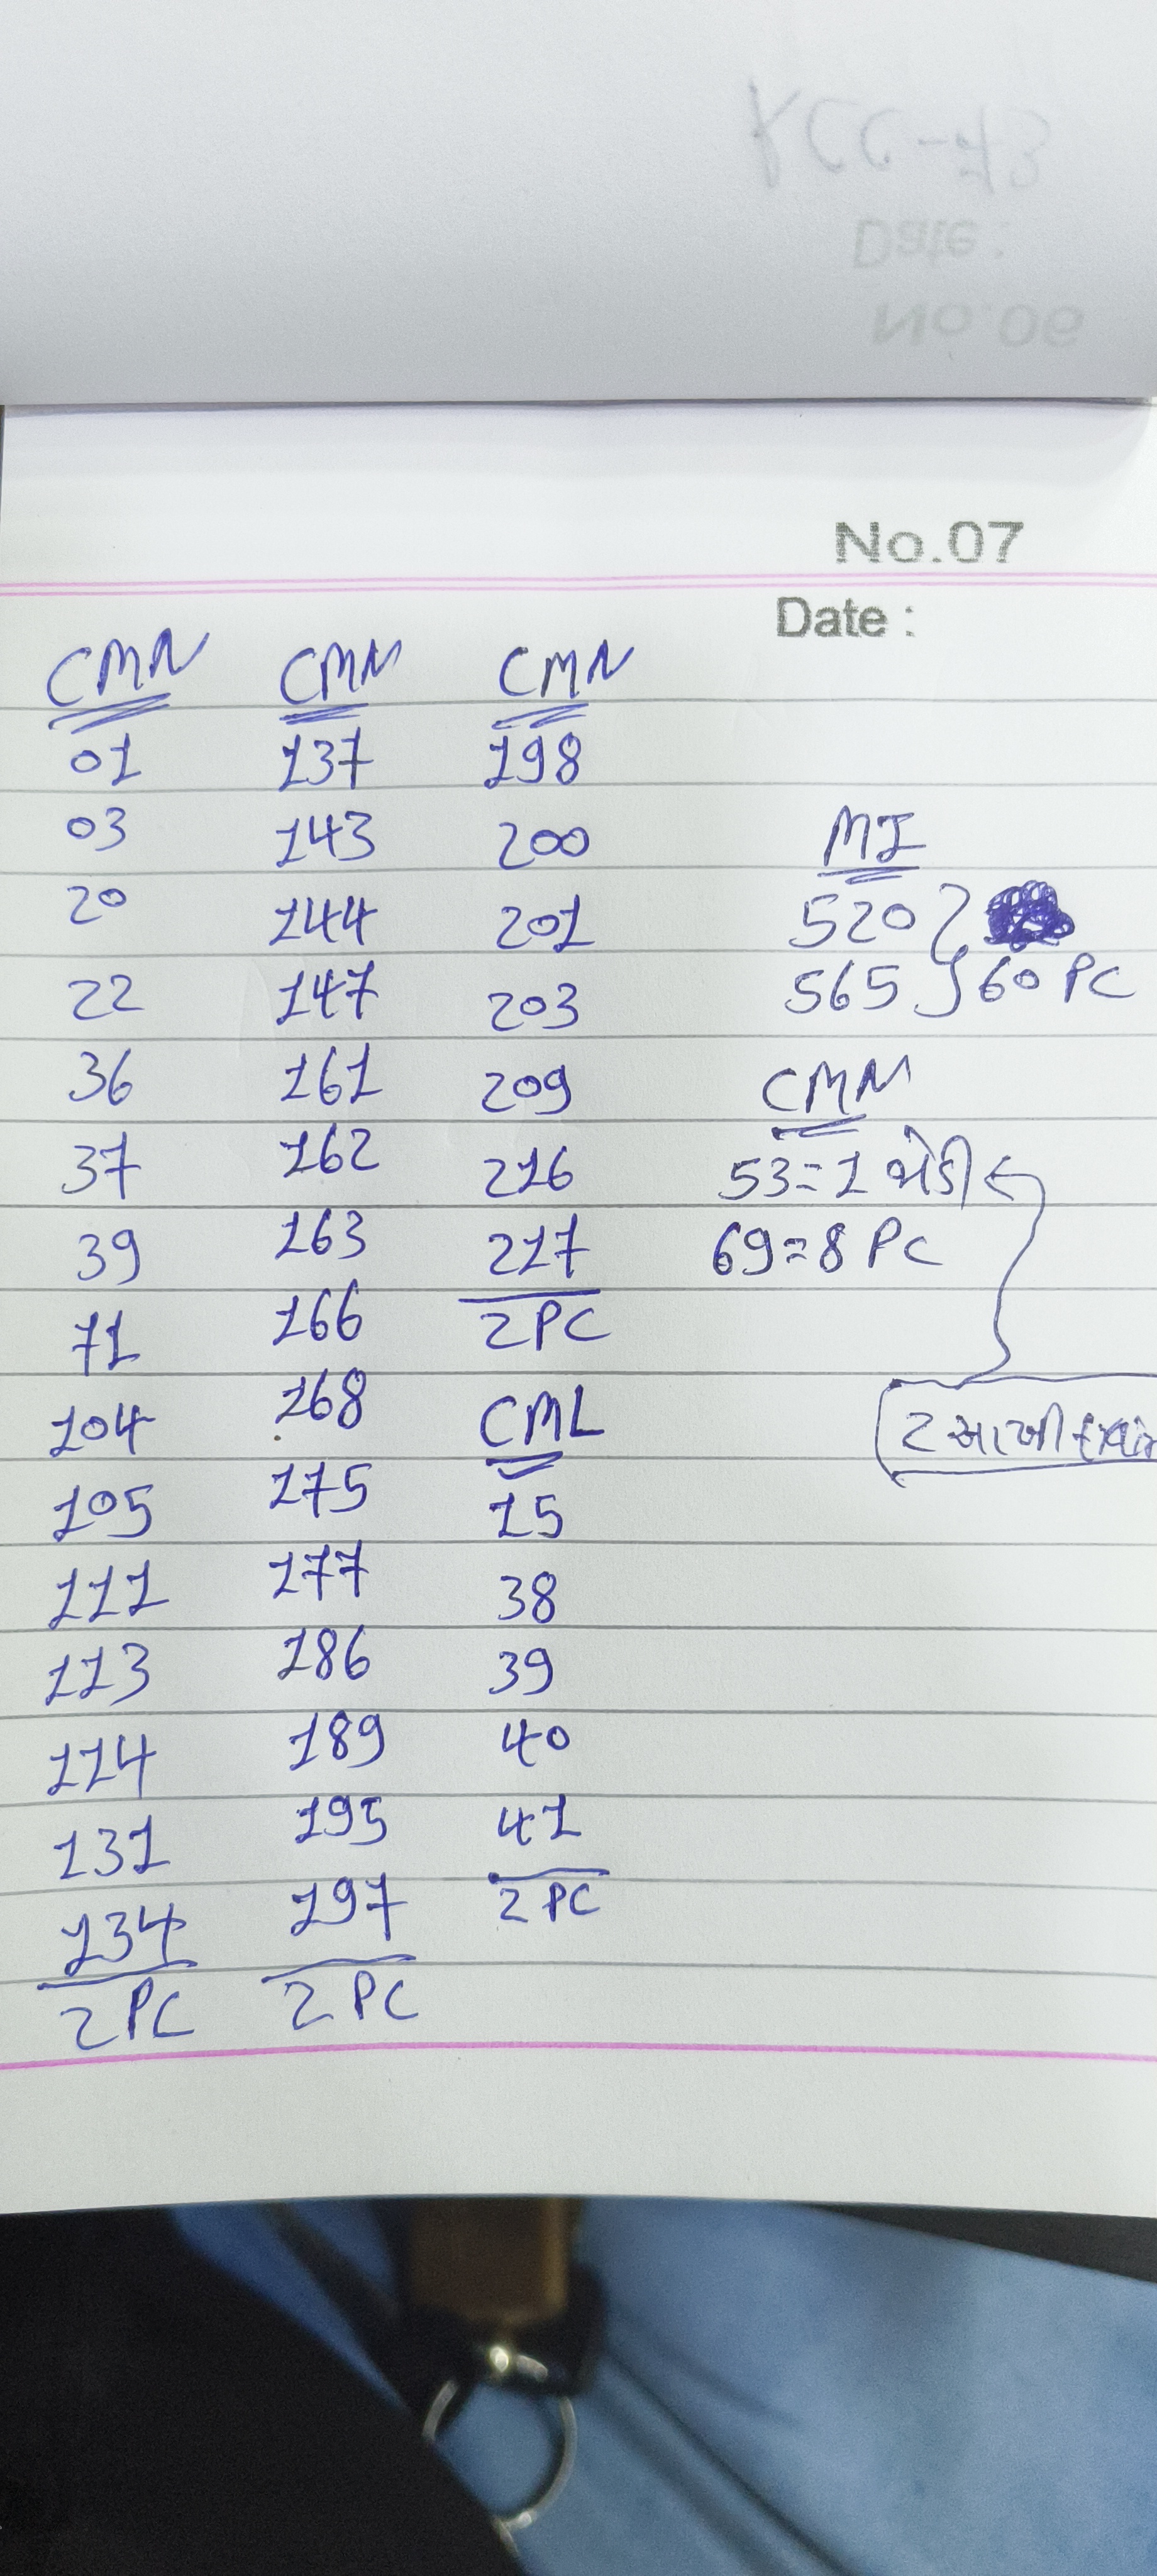 No.07
Date :
CMN
01
03
20
22
36
37
39
71
104
105
111
113
114
131
134
2 PC
CMN
137
143
144
147
161
162
163
166
168
175
177
186
189
195
197
2 PC
CMN
198
200
201
203
209
216
217
2 PC
CML
15
38
39
40
41
2 PC
MI
520
565 } 60 PC
CMN
53 = 1 જોડી
69 = 8 PC
2 આખી